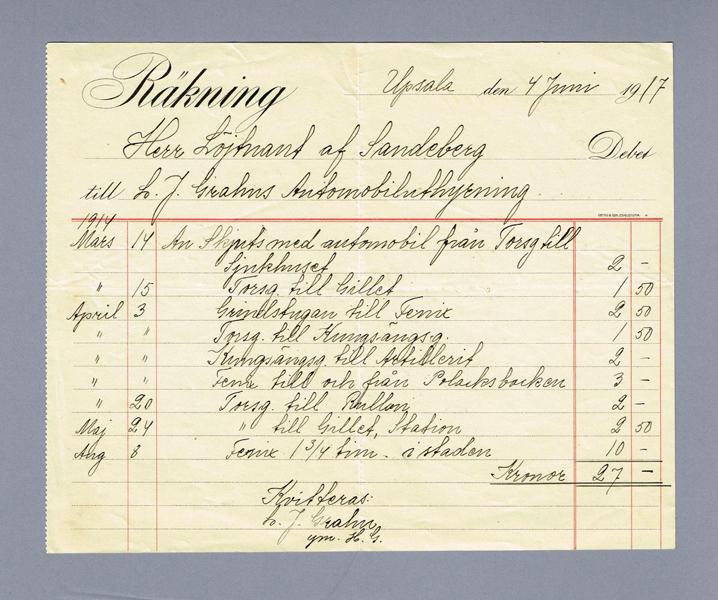 Räkning
Upsala den 4 Juni 1917
Herr Löjtnant af Sandeberg Debet
till L. J. Grahns Automobiluthyrning.
1914
Mars 14 An Skjuts med automobil från Torsg till
Sjukhuset 2 -
" 15 Torsg. till Gillet 1 50
April 3 Grindstugan till Fenix 2 50
" " Torsg. till Kungsängsg. 1 50
" " Kungsängsg. till Artillerit 2 -
" " Fenix till och från Polacksbacken 3 -
" 20 Torsg. till Rullan 2 -
Maj 24 " till Gillet, Station 2 50
Aug 8 Fenix 1 3/4 tim. i staden 10 -
Kronor 27 -
Kvitteras:
L. J. Grahn
gm. H. G.